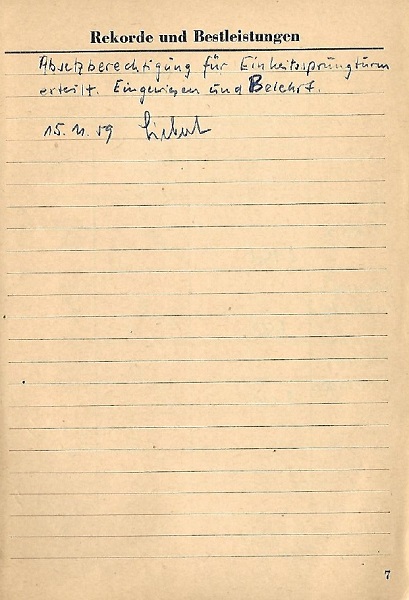 Rekorde und Bestleistungen
Absetzberechtigung für Einheitssprungturm
erteilt. Eingewiesen und Belehrt.
15. 11. 59
7